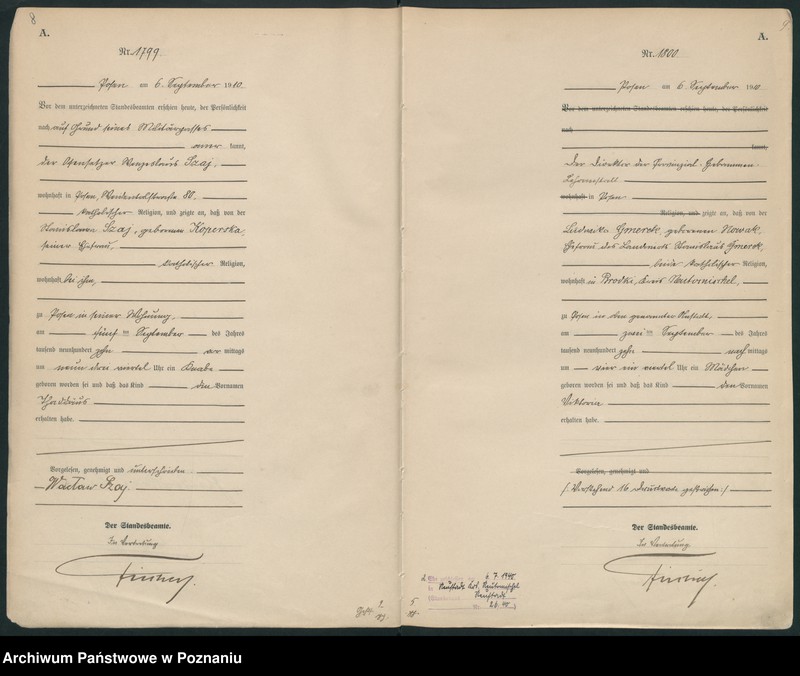 8
A.
Nr. 1799.
Posen am 6. September 1910.
Vor dem unterzeichneten Standesbeamten erschien heute, der Persönlichkeit
nach auf Grund seines Militärpasses
aner kannt,
der Ofensetzer Wenzeslaus Szaj,
wohnhaft in Posen, 80,
katholischer Religion, und zeigte an, daß von der
Stanislawa Szaj, geborenen Koperska,
seiner Ehefrau,
katholischer Religion,
wohnhaft bei ihm,
zu Posen in seiner Wohnung,
am fünf ten September des Jahres
tausend neunhundert zehn vor mittags
um neun drei viertel Uhr ein Knabe
geboren worden sei und daß das Kind den Vornamen
Thaddäus
erhalten habe.
Vorgelesen, genehmigt und unterschrieben
Wacław Szaj.
Der Standesbeamte.
In Vertretung
A.
Nr. 1800
Posen am 6. September 1910
Vor dem unterzeichneten Standesbeamten erschien heute, der Persönlichkeit
nach
kannt,
Der Direktor der Provinzial-Hebammen-
Lehranstalt
wohnhaft in Posen
Religion, und zeigte an, daß von der
Ludwika Gmerek, geborenen Nowak,
Ehefrau des Stanislaus Gmerek,
beide katholischer Religion,
wohnhaft in Brodki, Kreis Neutomischel,
zu Posen in der genannten Anstalt,
am zwei ten September des Jahres
tausend neunhundert zehn nach mittags
um vier ein viertel Uhr ein Mädchen
geboren worden sei und daß das Kind den Vornamen
Viktoria
erhalten habe.
Vorgelesen, genehmigt und
(: Vorstehend 16 Druckworte gestrichen :)
Der Standesbeamte.
In Vertretung
Archiwum Państwowe w Poznaniu